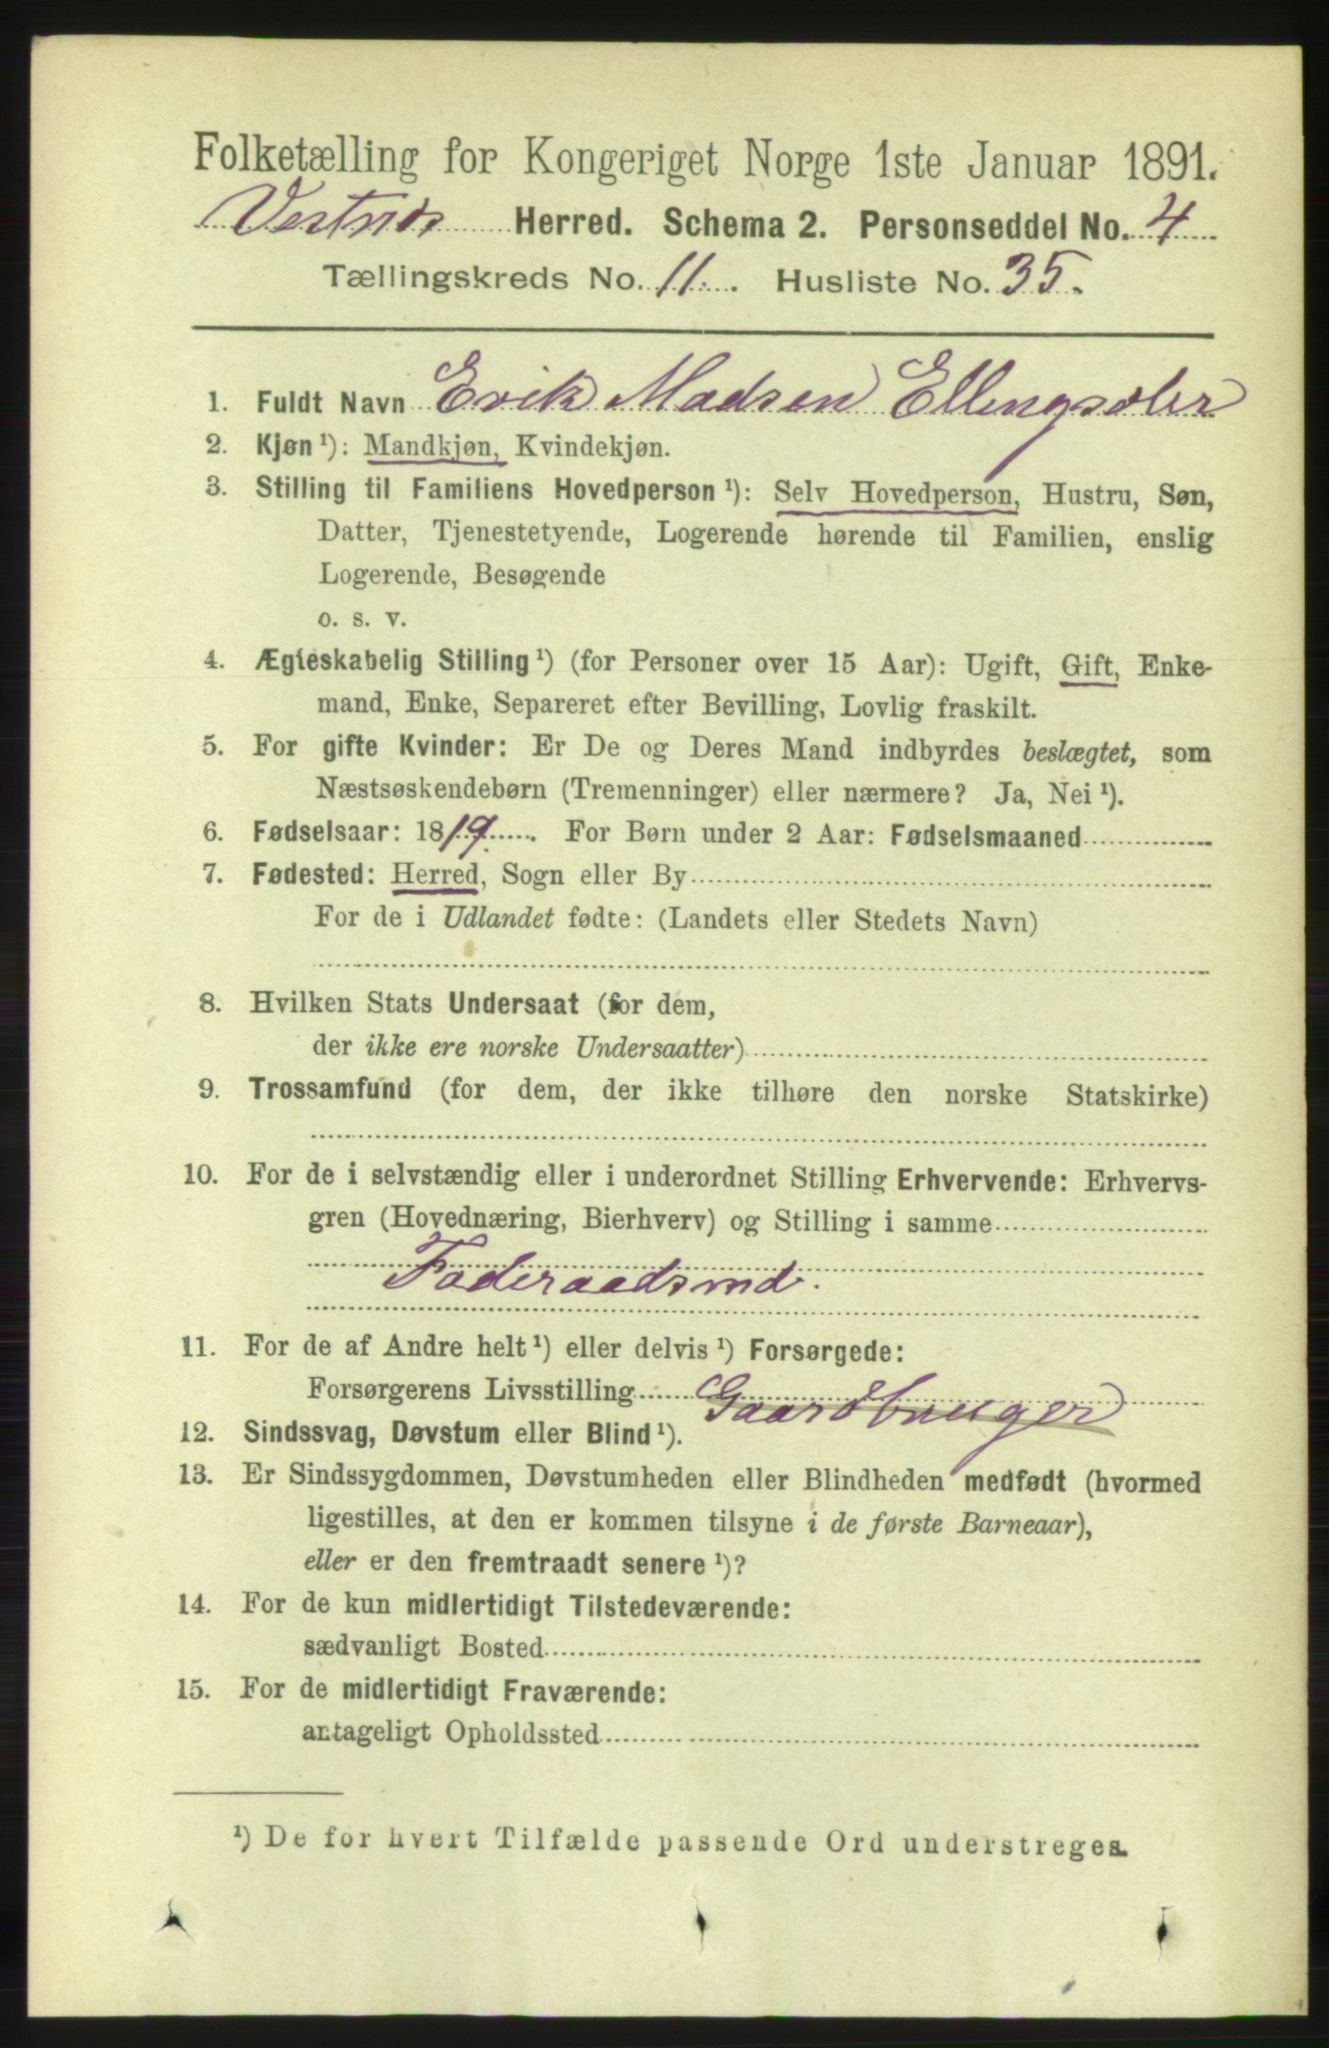 Folketælling for Kongeriget Norge 1ste Januar 1891.
Vestnes Herred. Schema 2. Personseddel No. 4
Tællingskreds No. 11. Husliste No. 35.
1. Fuldt Navn Erik Madsen
2. Kjøn ¹): Mandkjøn, Kvindekjøn.
3. Stilling til Familiens Hovedperson ¹): Selv Hovedperson, Hustru, Søn,
Datter, Tjenestetyende, Logerende hørende til Familien, enslig
Logerende, Besøgende
o. s. v.
4. Ægteskabelig Stilling ¹) (for Personer over 15 Aar): Ugift, Gift, Enke-
mand, Enke, Separeret efter Bevilling, Lovlig fraskilt.
5. For gifte Kvinder: Er De og Deres Mand indbyrdes beslægtet, som
Næstsøskendebørn (Tremenninger) eller nærmere? Ja, Nei ¹).
6. Fødselsaar: 1819. For Børn under 2 Aar: Fødselsmaaned
7. Fødested: Herred, Sogn eller By
For de i Udlandet fødte: (Landets eller Stedets Navn)
8. Hvilken Stats Undersaat (for dem,
der ikke ere norske Undersaatter)
9. Trossamfund (for dem, der ikke tilhøre den norske Statskirke)
10. For de i selvstændig eller i underordnet Stilling Erhvervende: Erhvervs-
gren (Hovednæring, Bierhverv) og Stilling i samme
Føderaadsmd.
11. For de af Andre helt ¹) eller delvis ¹) Forsørgede:
Forsørgerens Livsstilling Gaardbruger
12. Sindssvag, Døvstum eller Blind ¹).
13. Er Sindssygdommen, Døvstumheden eller Blindheden medfødt (hvormed
ligestilles, at den er kommen tilsyne i de første Barneaar),
eller er den fremtraadt senere ¹)?
14. For de kun midlertidigt Tilstedeværende:
sædvanligt Bosted
15. For de midlertidigt Fraværende:
antageligt Opholdssted
¹) De for hvert Tilfælde passende Ord understreges.